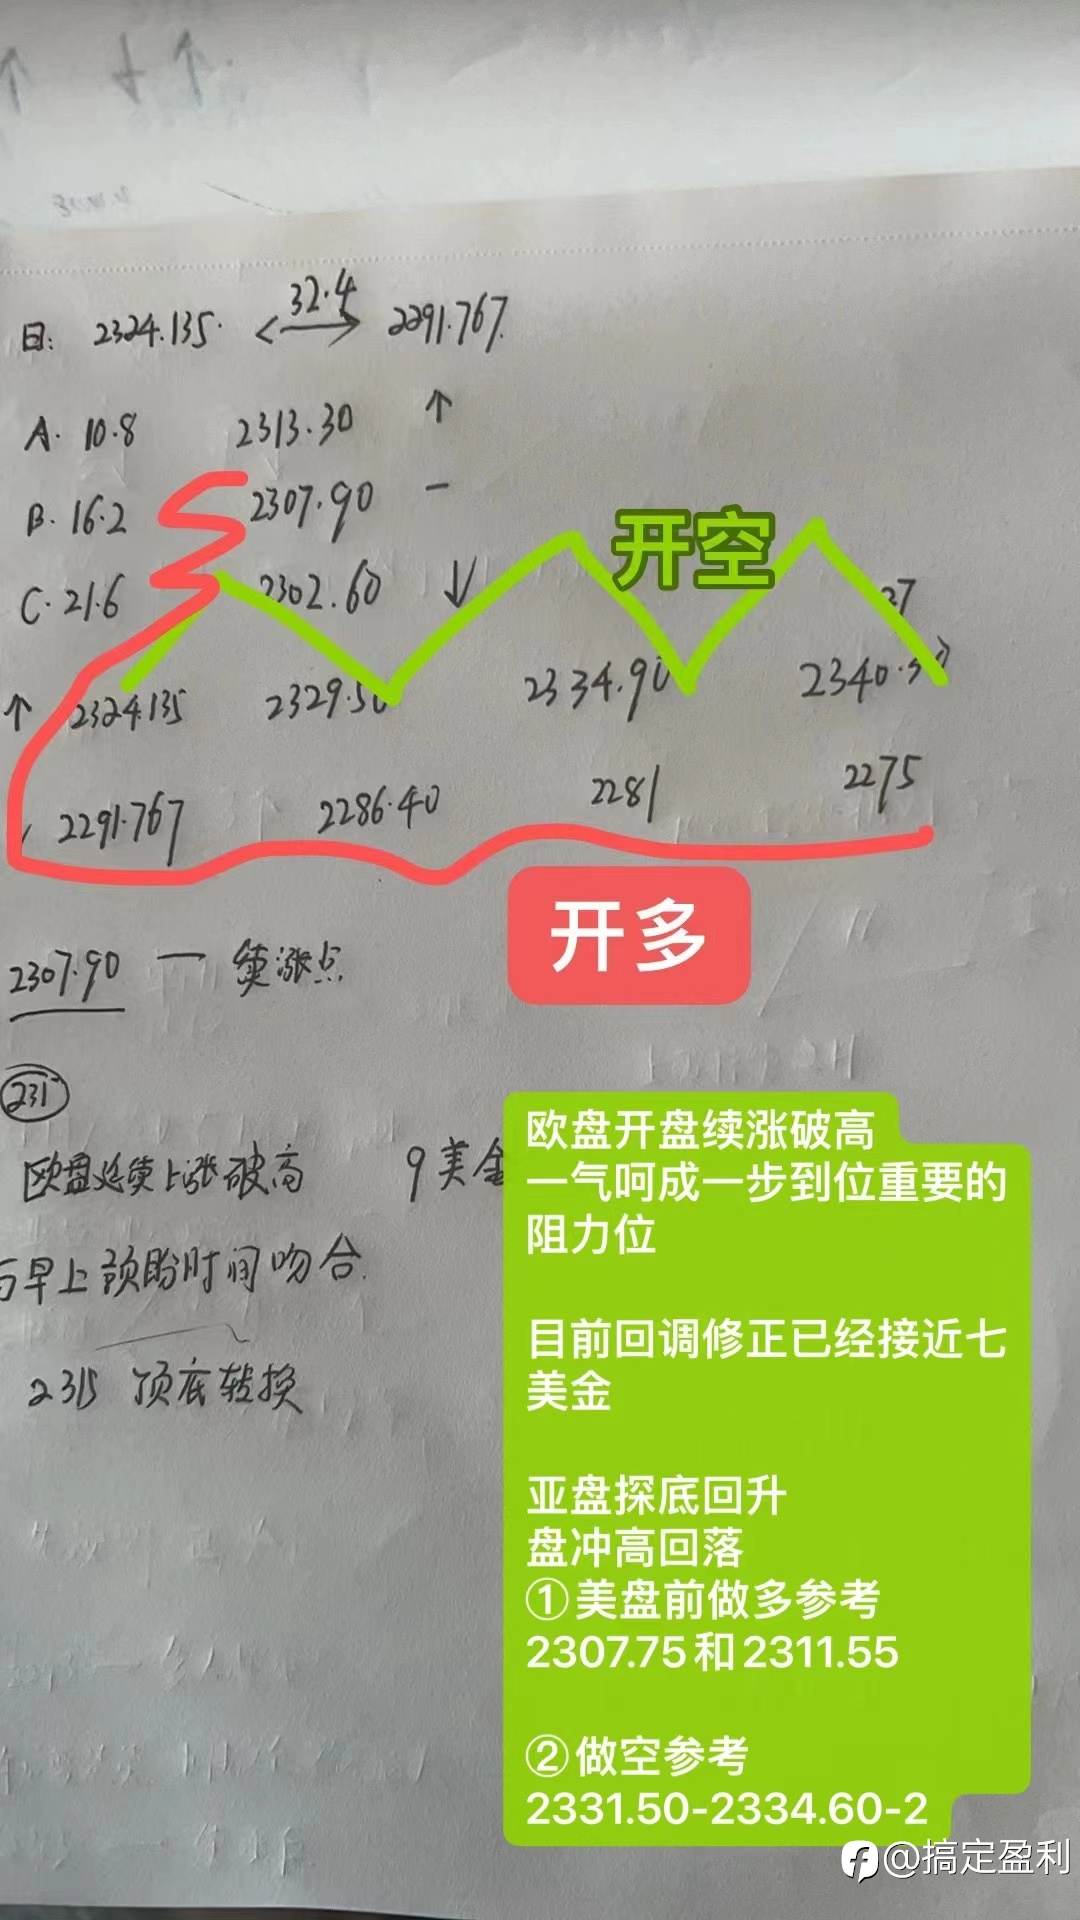 日: 2324.135 32.4 2291.767
A. 10.8 2313.30 ↑
B. 16.2 2307.90 —
C. 21.6 2302.60 ↓
开空
37
↑ 2324.135 2329.50 2334.90 2340.30
2291.767 2286.40 2281 2275
开多
2307.90 — 续涨点
231
欧盘延续上涨破高 9美金
早上预盼时间吻合
2315 顶底转换
欧盘开盘续涨破高
一气呵成一步到位重要的
阻力位
目前回调修正已经接近七
美金
亚盘探底回升
盘冲高回落
①美盘前做多参考
2307.75和2311.55
②做空参考
2331.50-2334.60-2
@搞定盈利